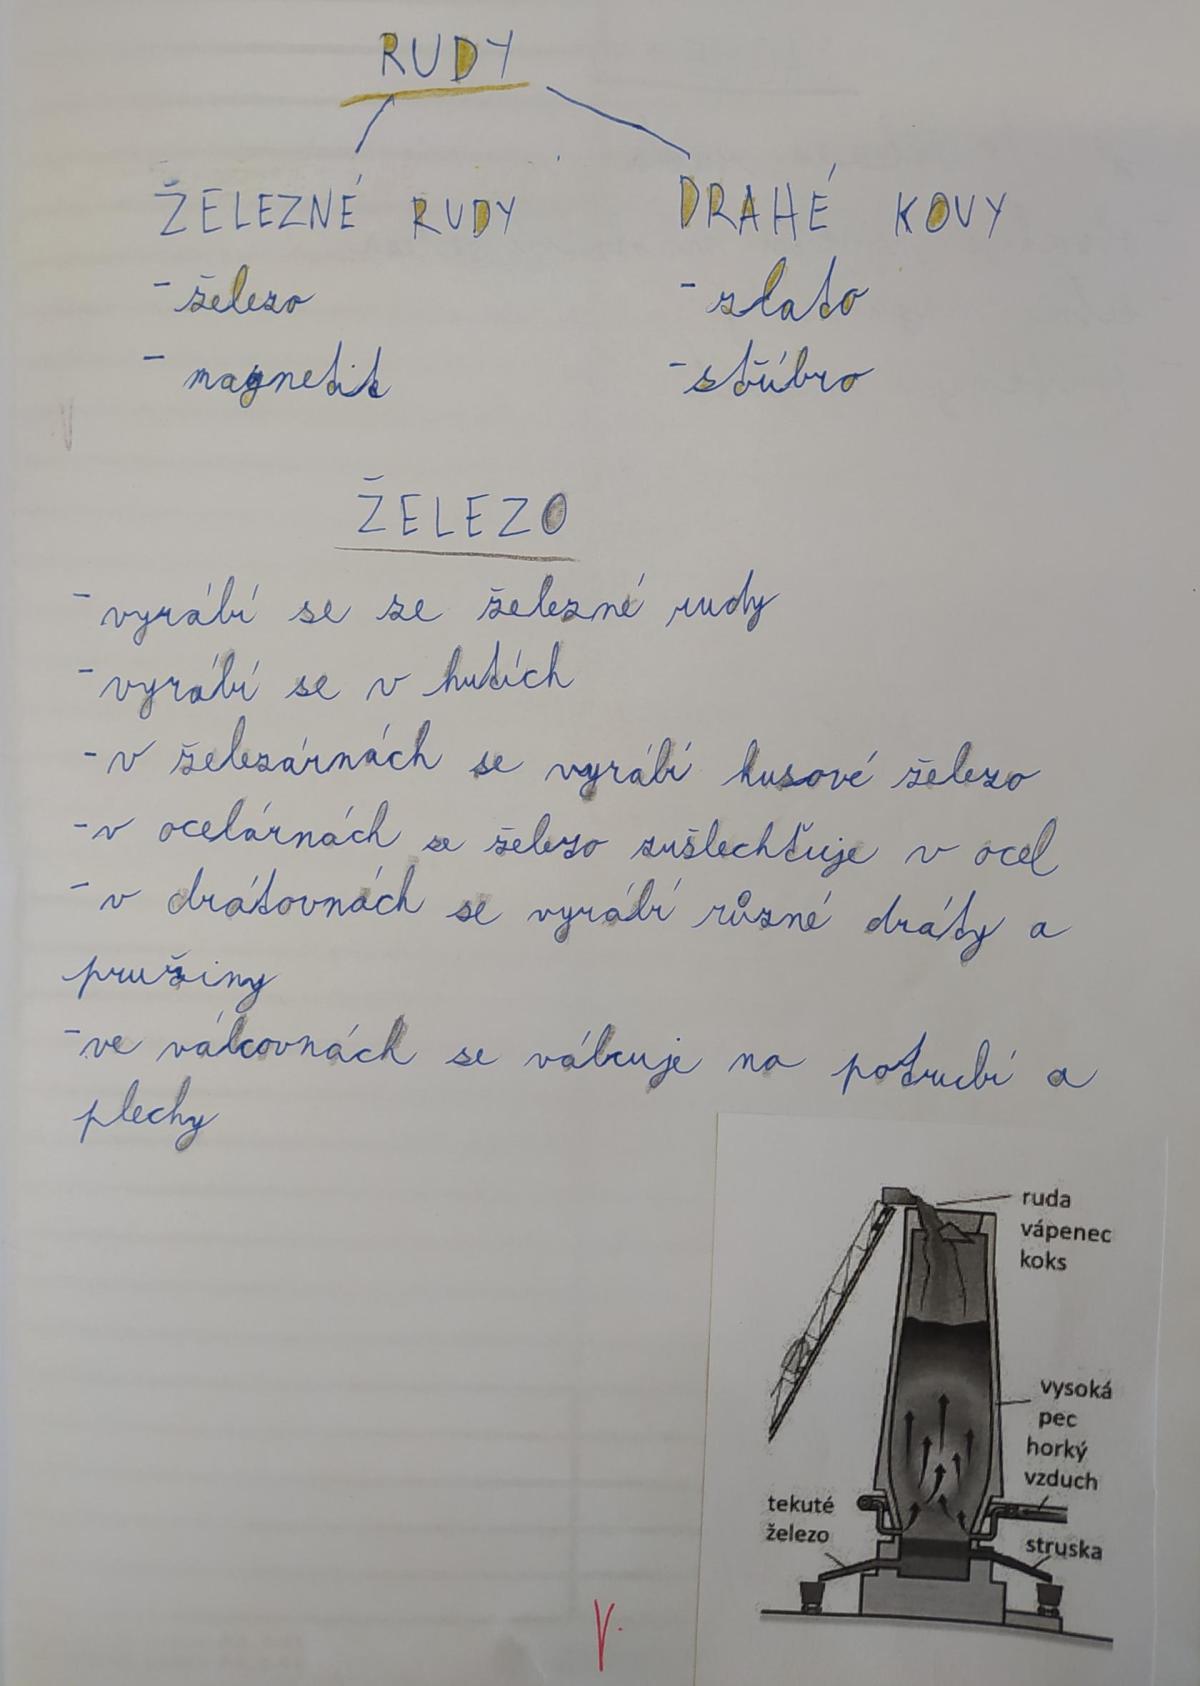 RUDY
ŽELEZNÉ RUDY
- železo
- magnetit
DRAHÉ KOVY
- zlato
- stříbro
ŽELEZO
- vyrábí se ze železné rudy
- vyrábí se v hutích
- v železárnách se vyrábí kusové železo
- v ocelárnách se železo zušlechťuje v ocel
- v drátovnách se vyrábí různé dráty a
pružiny
- ve válcovnách se válcuje na potrubí a
plechy
ruda
vápenec
koks
vysoká
pec
horký
vzduch
tekuté
železo
struska